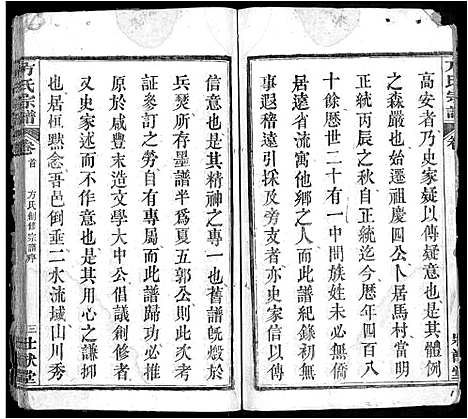 方氏宗譜
卷
高安者乃史家疑以傳疑意也是其體例
之森嚴也始遷祖慶四公卜居馬村當明
正統丙辰之秋自正統迄今歷年四百八
十餘歷世二十有一中間族姓未必無僑
居遠省流寓他鄉之人而此譜紀錄初無
事遐稽遠引採及旁支者亦史家信以傳
信意也是其精神之專一也舊譜既燬於
兵燹所存墨譜半爲夏五郭公則此次考
叅修訂之勞自有專屬而此譜歸功必推
原於咸豐末造文學大中公倡議創修者
又史家述而不作意也是其用心之謙抑
也居恒黙念吾邑倒垂二水流域山川秀
方氏宗譜
卷首
方氏創修宗譜序
三
壯猷堂